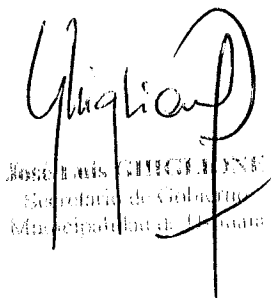 Ghiglione
José Luis GHIGLIONE
Secretario de Gobierno
Municipalidad de